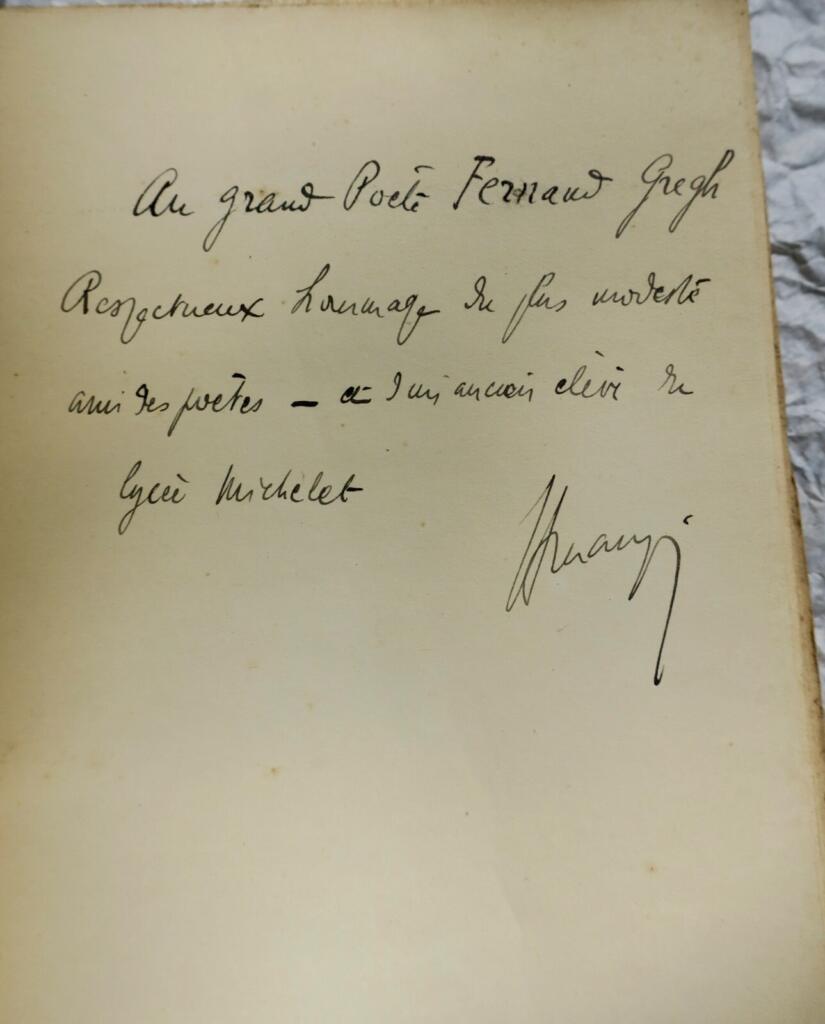 Au grand Poète Fernand Gregh
Respectueux hommage du plus modeste
ami des poètes — et d'un ancien élève du
lycée Michelet